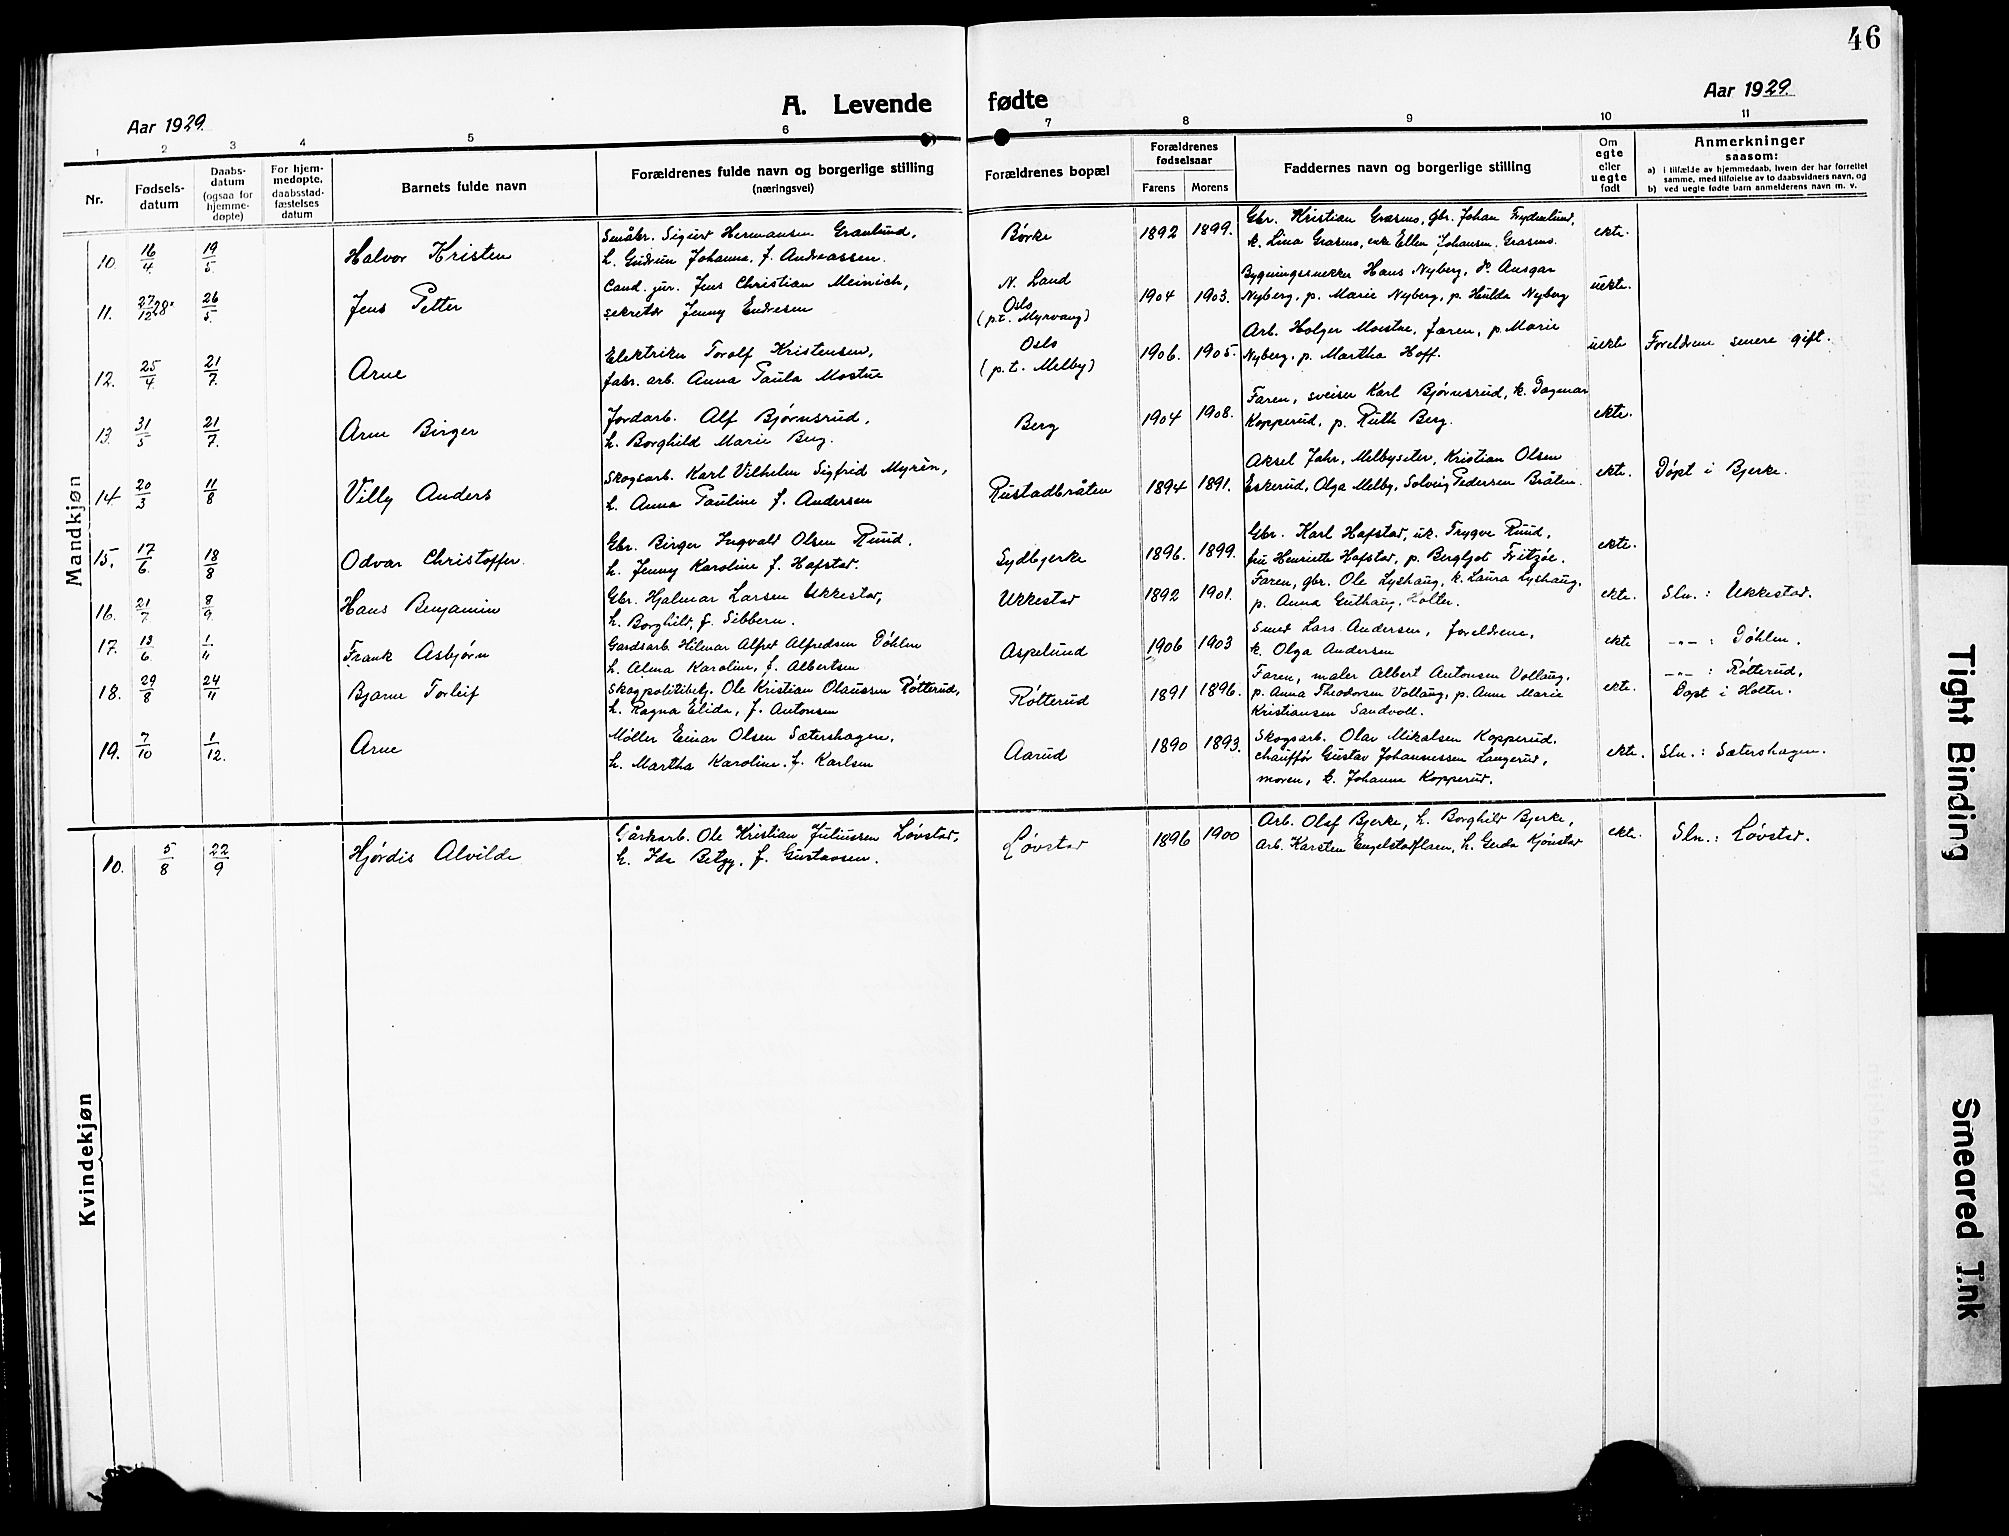 46
Aar 1929.
A. Levende fødte
Aar 1929.
1 2 3 4 5 6 7 8 9 10 11
Nr.
Fødsels-
datum
Daabs-
datum
(ogsaa for
hjemme-
døpte)
For hjem-
medøpte.
daabsstad-
fæstelses
datum
Barnets fulde navn
Forældrenes fulde navn og borgerlige stilling
(næringsvei)
Forældrenes bopæl
Forældrenes
fødselsaar
Farens Morens
Faddernes navn og borgerlige stilling
Om
egte
eller
uegte
født
Anmerkninger
saasom:
a) i tilfælde av hjemmedaab, hvem der har forrettet
samme, med tilføielse av to daabsvidners navn, og
b) ved uegte fødte barn anmelderens navn m. v.
Mandkjøn
10. 16/4 19/5 Halvor Kristen
Småbr. Sigurd Hermansen Granlund,
h. Gudrun Johanne, f. Andreassen.
Børke 1892 1899.
Gbr. Kristian Grasmo, gbr. Johan Frydenlund,
k. Lina Grasmo, enke Ellen Johansen Grasmo.
ekte.
11. 27/12 28. 26/5 Jens Petter
Cand. jur. Jens Christian Meinich,
sekretær Jenny Endresen
N. Land
Oslo
(p.t. Myrvang)
1904 1903.
Bygningssnekker Hans Nyberg, Ansgar
Nyberg, p. Marie Nyberg, p. Hulda Nyberg
uekte.
12. 25/4 21/7. Arne
Elektriker Torolf Kristensen,
fabr. arb. Anna Paula Mostue
Oslo
(p.t. Melby)
1906. 1905.
Arb. Holger Mostue, faren, p. Marie
Nyberg, p. Martha Hoff.
uekte
Foreldrene senere gift.
13. 31/5 21/7. Arne Birger
Jordarb. Alf Bjørnsrud,
h. Borghild Marie Berg.
Berg 1904 1908.
Faren, sveiser Karl Bjørnsrud, k. Dagmar
Kopperud, p. Ruth Berg.
ekte.
14. 20/3 11/8 Villy Anders
Skogsarb. Karl Vilhelm Sigfrid Myrén,
h. Anna Pauline f. Andersen
Rustadbråten 1894 1891.
Aksel Jahr, Melbyseter, Kristian Olsen
Eskerud, Olga Melby, Solveig Pedersen Bråten.
ekte.
Døpt i Bjerke.
15. 17/6. 18/8 Odvar Christoffer.
Gbr. Birger Ingvald Olsen Ruud.
h. Jenny Karoline f. Hafstad.
Sydbjerke 1896. 1899.
Gbr. Karl Hafstad, uk. Trygve Ruud,
fru Henriette Hafstad, p. Bergljot Fritzøe.
ekte.
16. 21/7. 8/9. Hans Benjamin
Gbr. Hjalmar Larsen Ukkestad,
h. Borghild, f. Sibbern.
Ukkestad 1892 1901.
Faren, gbr. Ole Lyshaug, k. Laura Lyshaug,
p. Anna Guthaug, Holter.
ekte.
Sln.: Ukkestad.
17. 13/6 1/11 Frank Asbjørn
Gardsarb. Hilmar Alfred Alfredsen Døhlen
h. Alma Karoline, f. Albertsen
Aspelund 1906 1903
Smed Lars Andersen, foreldrene,
k. Olga Andersen
ekte
-"- : Døhlen.
18. 29/8 24/11 Bjarne Torleif
Skogpolitibetj. Ole Kristian Olaussen Røtterud,
h. Ragna Elida, f. Antonsen
Røtterud 1891 1896.
Faren, maler Albert Antonsen Vollaug,
p. Anna Theodorsen Vollaug, p. Anne Marie
Kristiansen Sandvoll.
ekte.
-"- : Røtterud,
Døpt i Holter.
19. 7/10 1/12. Arne
Møller Einar Olsen Sætershagen,
h. Martha Karoline, f. Karlsen
Aarud 1890 1893.
Skogsarb. Olav Mikalsen Kopperud,
chauffør Gustav Johannessen Langerud,
moren, k. Johanne Kopperud.
ekte.
Sln.: Sætershagen.
Kvindekjøn
10. 5/8 22/9 Hjørdis Alvilde
Gårdsarb. Ole Kristian Juliussen Løvstad,
h. Ida Betzy, f. Gustavsen.
Løvstad 1896 1900
Arb. Olaf Bjerke, h. Borghild Bjerke,
Arb. Karsten Engelstad, h. Gerda Kjønstad
ekte.
Sln.: Løvstad.
Tight Binding
Smeared Ink